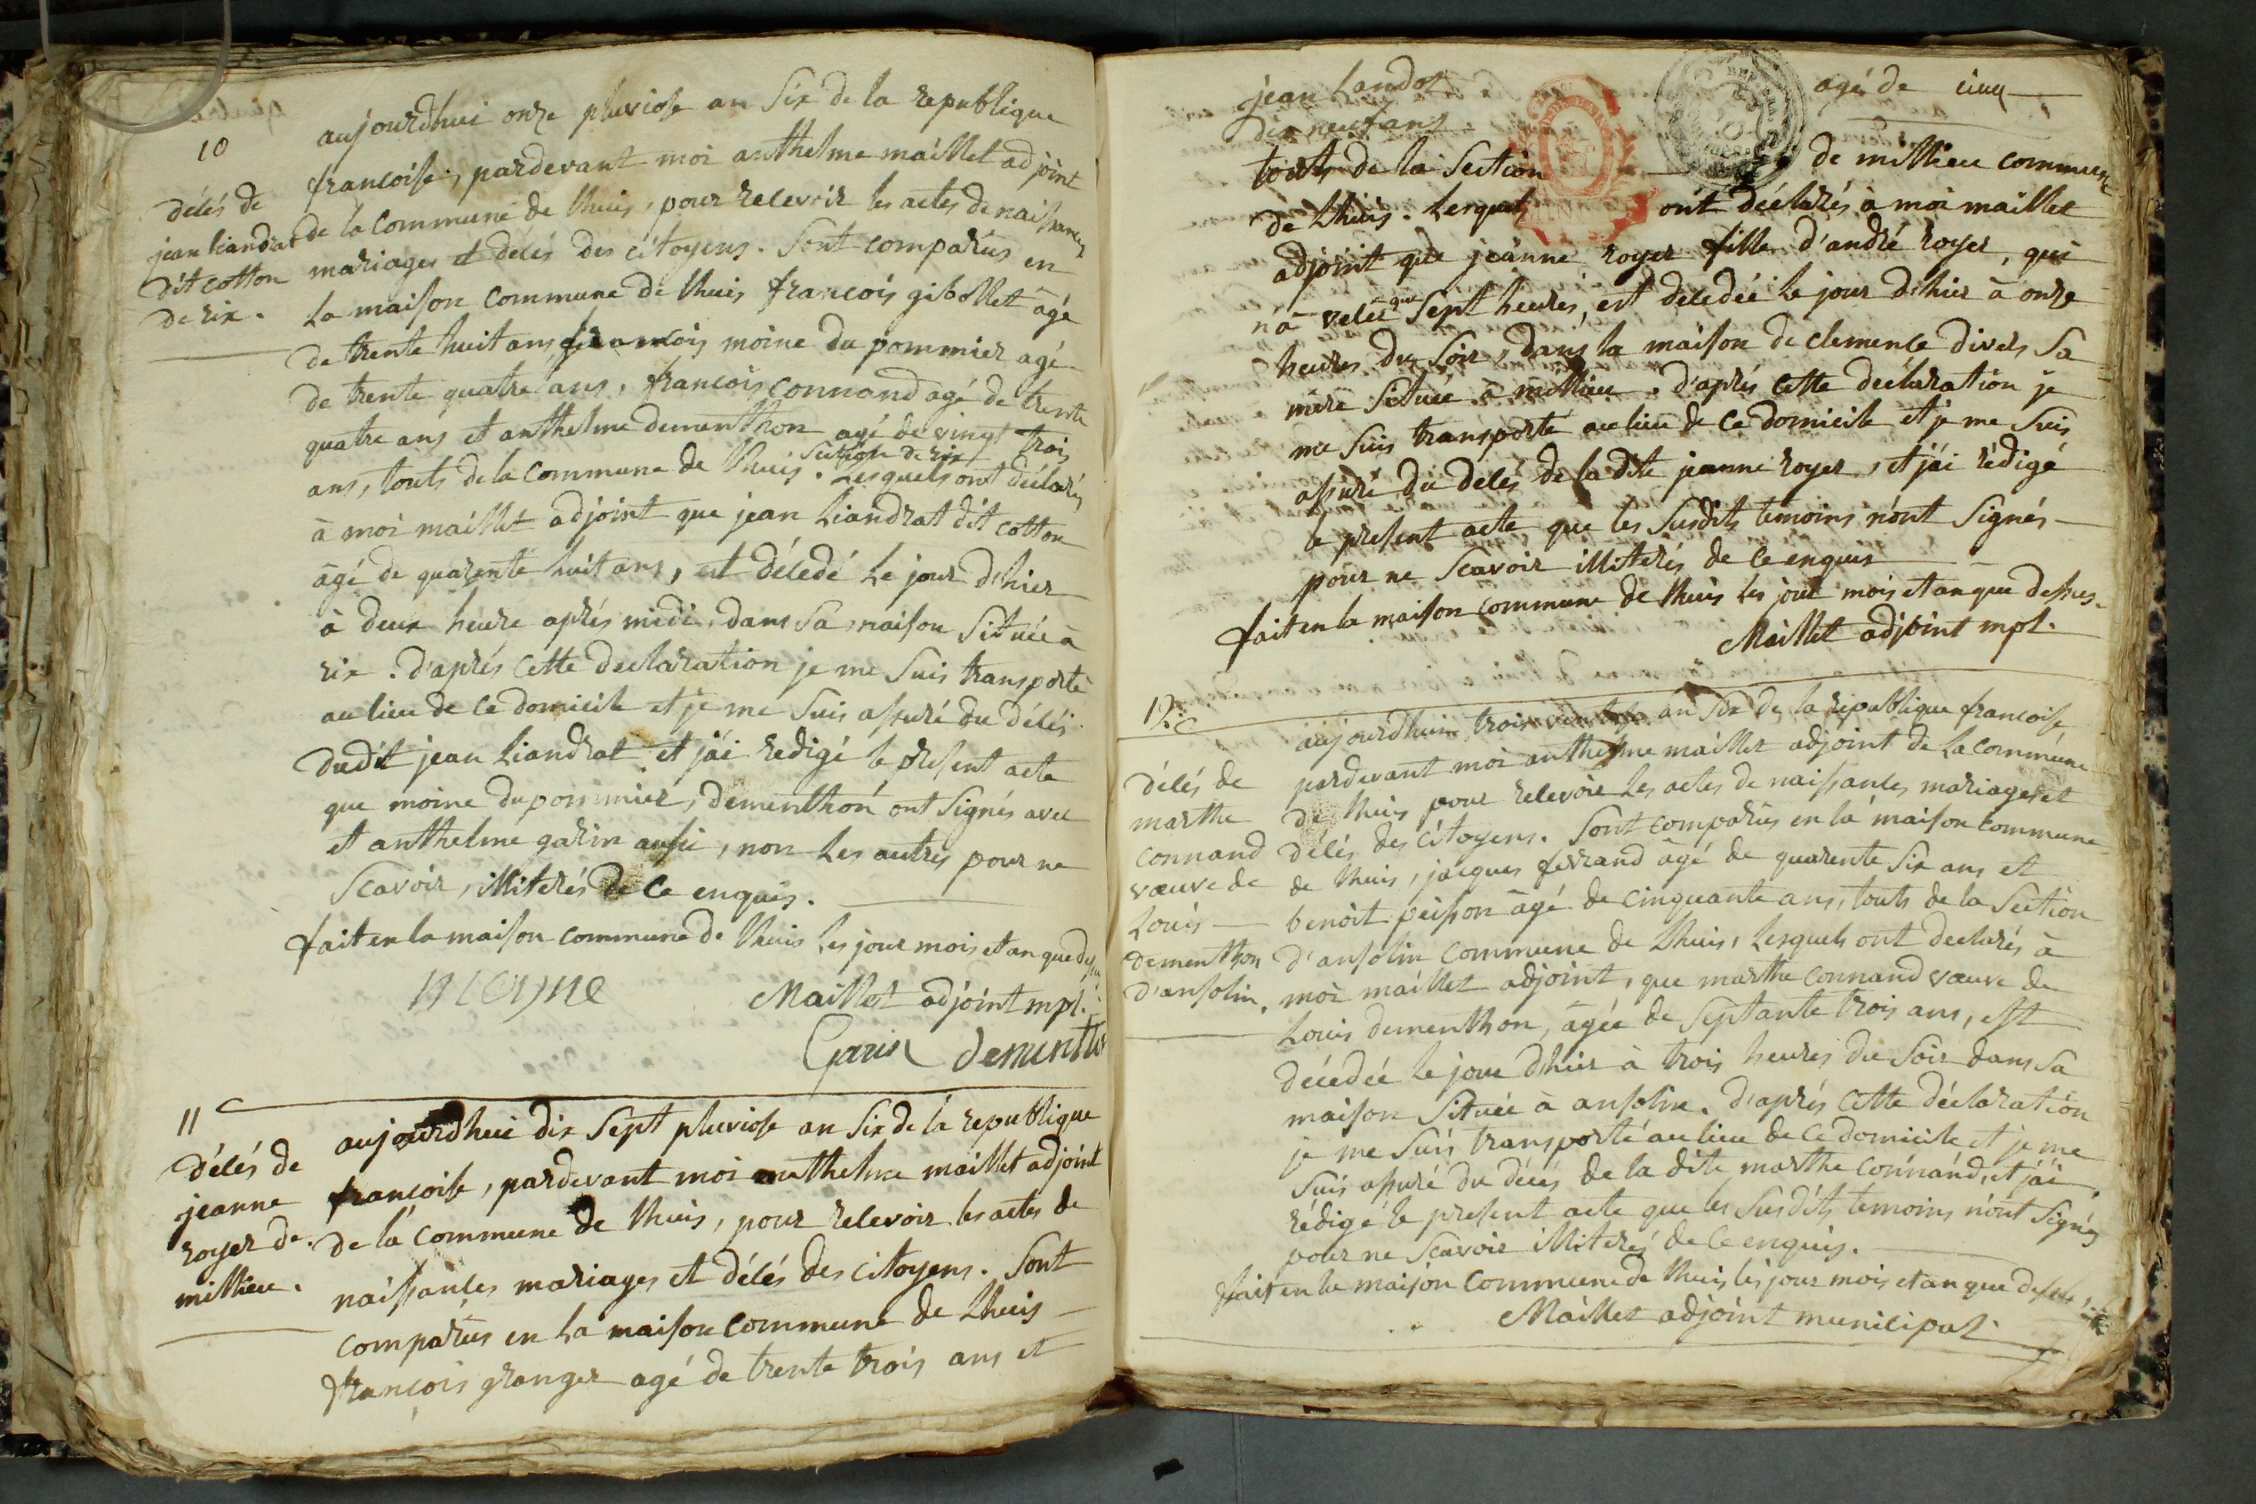 10
décés de
jean liandrat
dit cotton
de rix.
aujourdhui onze pluviose an Six de la republique
francoise, pardevant moi anthelme maillet adjoint
de la Commune de lhuis, pour recevoir les actes de naissances
mariages et décés des citoyens. Sont comparus en
la maison Commune de lhuis francois gibollet âgé
de trente huit ans francois moine du pommier agé
de trente quatre ans, francois Connand agé de trente
quatre ans et anthelme dementhon agé de vingt trois
ans, touts de la Commune de lhuis. Section de rix Lesquels ont déclarés
à moi maillet adjoint que jean Liandrat dit cotton
âgé de quarente huit ans, est décedé le jour d'hier
à deux heure aprés midi, dans Sa maison Située à
rix. d'aprés cette declaration je me Suis transporté
au lieu de ce domicile et je me Suis assuré du décés
dudit jean Liandrat et j'ai redigé le present acte
que moine du pommier, dementhon ont Signés avec
et anthelme garin aussi, non les autres pour ne
Scavoir, illiterés de ce enquis.
fait en la maison commune de lhuis les jour mois et an que dessus
moyne Maillet adjoint mpl.
Garin dementhon
11
décés de
jeanne
royer de
millieu.
aujourdhui dix Sept pluviose an Six de la republique
francoise, pardevant moi anthelme maillet adjoint
de la Commune de lhuis, pour recevoir les actes de
naissances mariages et décés des citoyens. Sont
comparus en la maison Commune de Lhuis
francois granger agé de trente trois ans et
jean Landot agé de cinq
dix neuf ans
touts de la Section de millieu commune
de Lhuis. Lesquels ont déclarés à moi maillet
adjoint que jeanne royer fille d'andré royer, qui
n'a vecu que Sept heures, est decedée le jour d'hier à onze
heures du Soir, dans la maison de clemence divers Sa
mere Située à millieu. d'aprés cette declaration je
me Suis transporté au lieu de ce domicile et je me Suis
assuré du decés de la dite jeanne royer, et j'ai rédigé
le present acte, que les Susdits temoins n'ont Signés
pour ne Scavoir illiterés de ce enquis
fait en la maison commune de lhuis les jour mois et an que dessus.
Maillet adjoint mpl.
12
décés de
marthe
connand
vœuve de
Louis
dementhon
d'ansolin.
aujourdhui trois ventose an Six de la republique francoise
pardevant moi anthelme maillet adjoint de la Commune
de lhuis pour recevoir les actes de naissances mariages et
décés des citoyens. Sont comparus en la maison commune
de lhuis, jacques ferrand âgé de quarente Six ans et
benoit peisson âgé de cinquante ans, touts de la Section
d'ansolin Commune de Lhuis, Lesquels ont declarés à
moi maillet adjoint, que marthe connand vœuve de
Louis dementhon, âgée de Septante trois ans, est
décedée le jour d'hier à trois heures du Soir dans Sa
maison Située à ansolin. d'aprés cette déclaration
je me Suis transporté au lieu de ce domicile et je me
Suis assuré du décés de la dite marthe Connand, et j'ai
rédigé le present acte que les Susdits temoins n'ont Signés
pour ne Scavoir illiterés de ce enquis.
fait en la maison Commune de lhuis les jour mois et an que dessus.
Maillet adjoint municipal